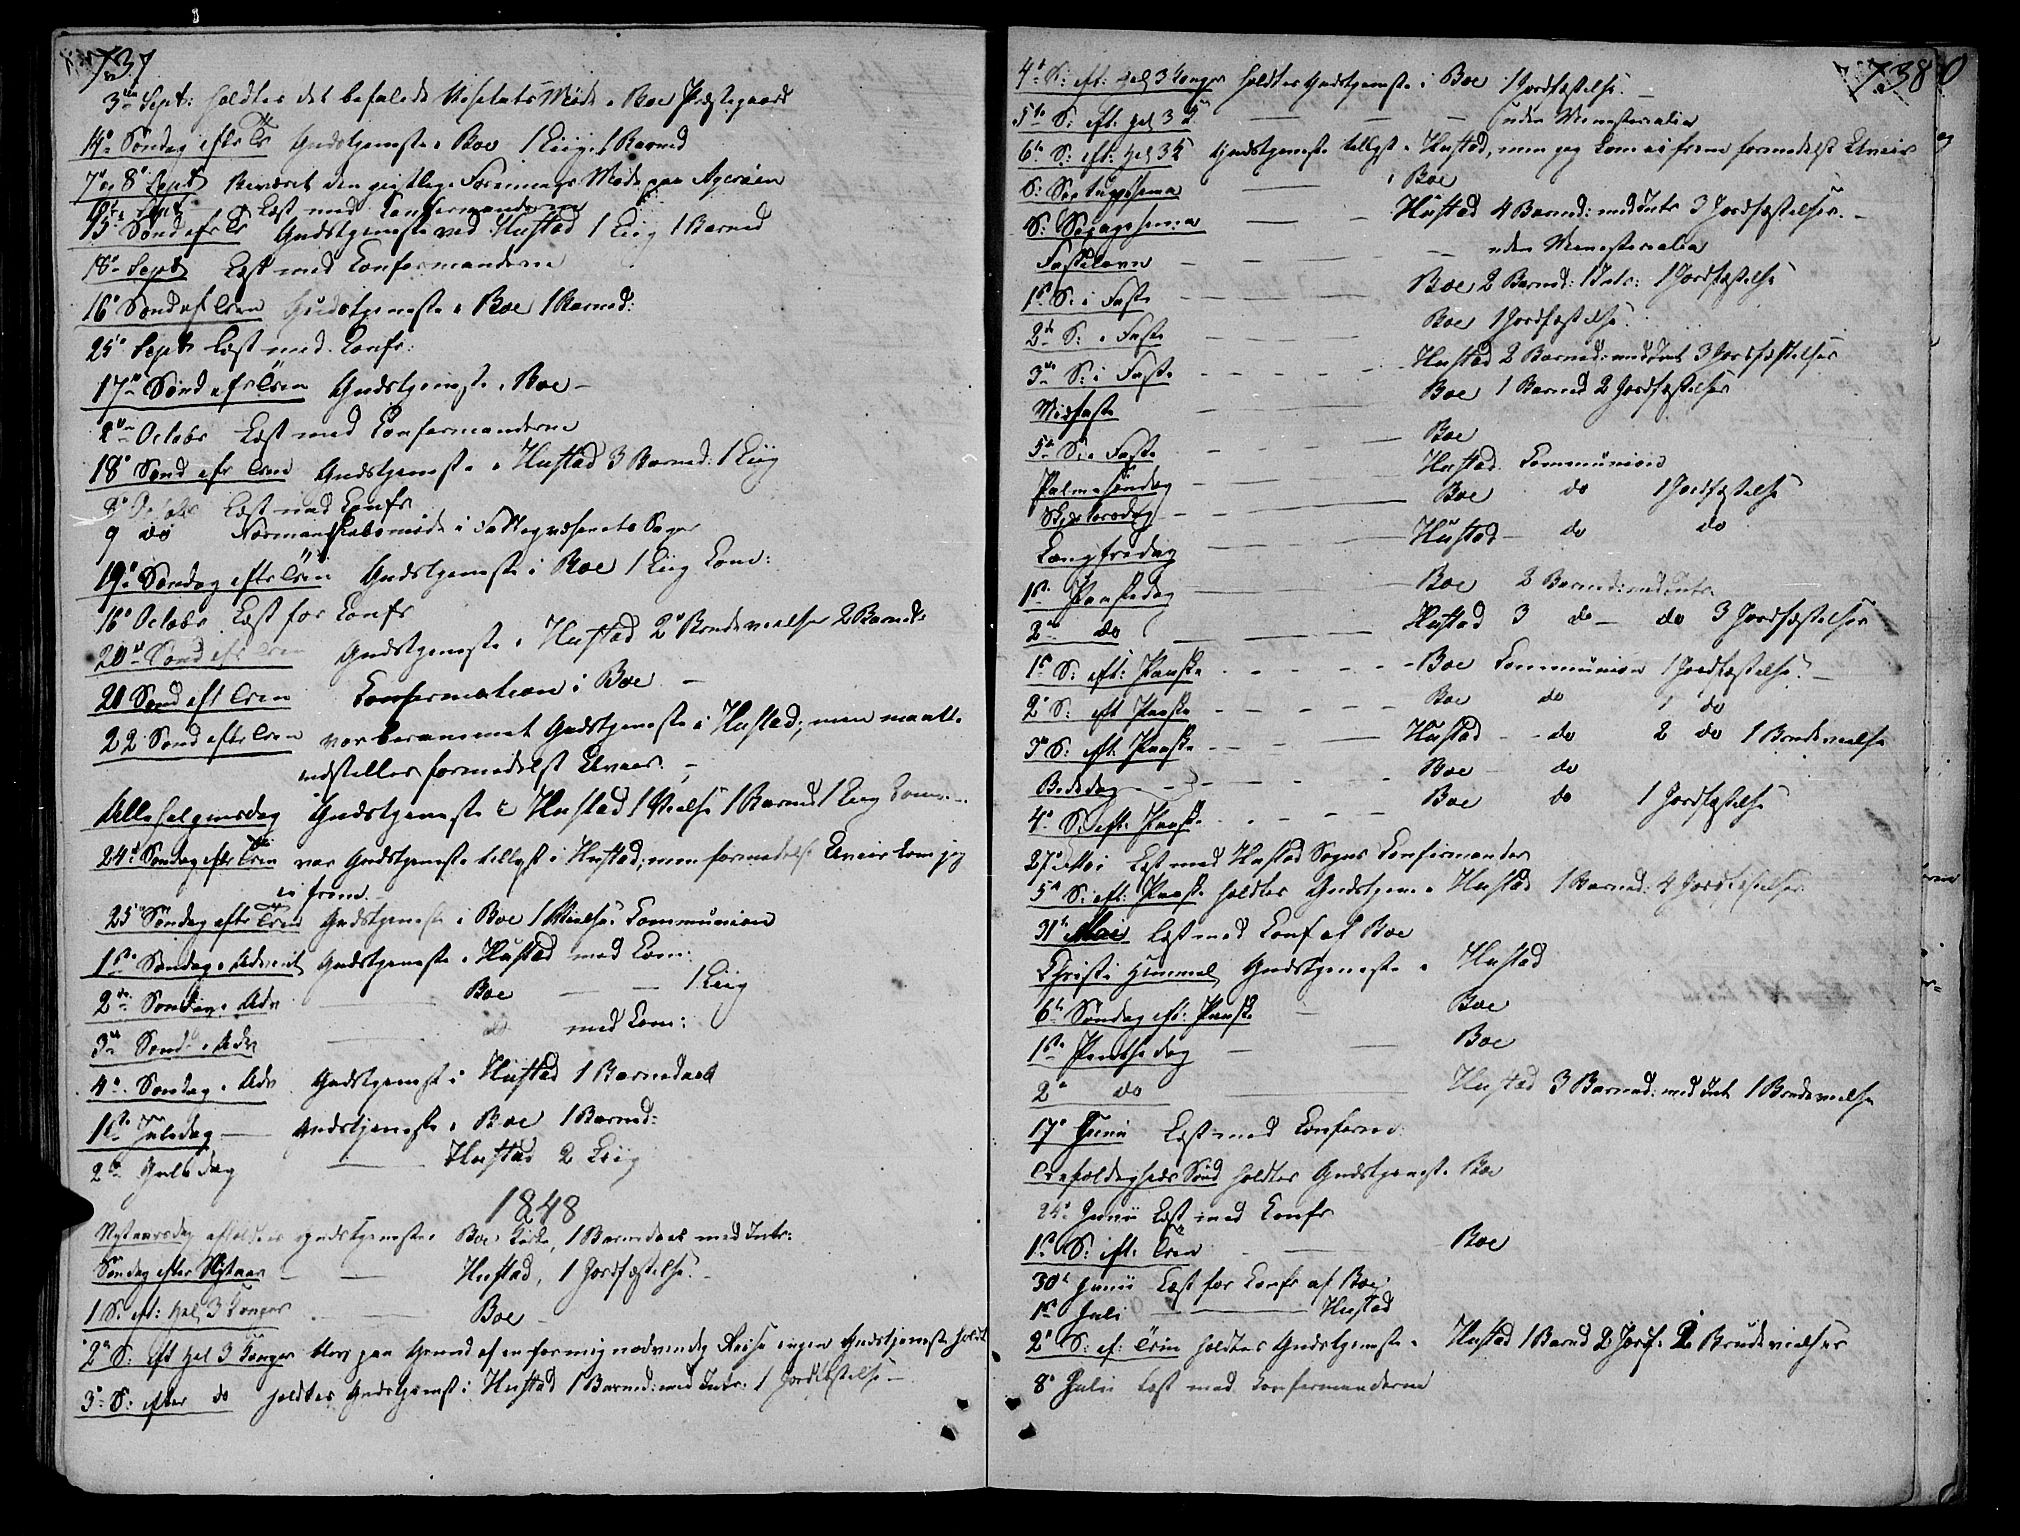 737
3die Sept: holdtes det befalede Møde i Boe Præstegaard
14de Søndag efter Tr Gudstjeneste i Boe 1 Liig, 1 Barned
7de og 8de Sept den geistlige Forenings Møde paa Agerøen
Sept Læst med Konfermanderne
15 Sønd eftr Tr Gudstjeneste ved Hustad 1 Liig 1 Barned
18de Sept Læst med Confermanderne
16de Sønd eft Tren Gudstjeneste i Boe 1 Barned:
25de Sept Læst med Conf:
17de Sønd eftr Tren Gudstjeneste i Boe –
2den Octobr Læst med Confermanderne
18de Sønd eftr Tren Gudstjeneste i Hustad 3 Barned: 1 Liig
Octobr Læst med Conf
9 do Formandskabsmøde i Fattigvæsenets Sager
19de Søndag efter Tren Gudstjeneste i Boe 1 Liig Com:
16de Octobr Læst for Conf
20de Sønd eft Tren Gudstjeneste i Hustad 2 Brudevielse 2 Barnd
21 Sønd eft Tren Confermation i Boe –
22 Sønd eftr Tren var berammet Gudstjeneste i Hustad; men maatte
udstilles formedelst Uveir. –
Allehelgensdag Gudstjeneste i Hustad 1 Vielse 1 Barned 1 Liig Com
24de Søndag eftr Tren var Gudstjeneste tillyst i Hustad; men formedelst Uveir kom jeg
ei frem.
25de Søndag eftr Tren Gudstjeneste i Boe 1 Vielse Communion
1ste Søndag i Advent Gudstjeneste i Hustad med Com:
2den Søndag i Adv — Boe — — 1 Liig
3die Sønd i Adv — do med Com:
4de Søndag i Adv Gudstjeneste i Hustad 1 Barnedaab
1ste Juledag — Gudstjeneste i Boe 1 Barned:
2den Juledag — Hustad 2 Liig
1848
Nytaarsdag afholdtes Gudstjeneste i Boe Kirke, 1 Barnedaab med Intr:
Søndag efter Nytaar — — Hustad, 1 Jordfæstelse. –
1 S: eft: Hel 3 Konger — Boe –
2den S: eft Hel 3 Konger blev paa Grund af en for mig nødvendig Reise ingen Gudstjeneste holdt
3de S: efter do holdtes Gudstjenest i Hustad 1 Barned: med Intr: 1 Jordfæstelse –
738
4de S: eft: Hel 3 Konger holdtes Gudstjeneste i Boe 1 Jordfæstelse. –
5te S: eft: Hel 3 K — — — uden Ministerialia
6te S: eft: Hel 3 K Gudstjeneste tillyst i Hustad, men jeg kom ei frem formedelst Uveir
S: Septuagesima — i Boe
S: Sexagesima — — Hustad 4 Barned: med Intr 3 Jordfæstelser. –
Fastelavn – – – – – uden Ministerialia
1ste S: i Faste – – – – Boe 2 Barned: 1 Intr: 1 Jordfæstelse
2den S: i Faste – – – – Boe 1 Jordfæstelse.
3die S: i Faste – – – – Hustad 2 Barned: med Int 3 Jordfæstelser
Midfaste — — Boe 1 Barned 2 Jordfæstelser
5te S: i Faste – – – Boe
Palmesøndag – – – Hustad Communion
Skjertorsdag — Boe do 1 Jordfæstelse
Langfredag — Hustad — do do
1ste Paaskedag — Boe 2 Barned: med Intr
2den do — Hustad 3 do — do 3 Jordfæstelser
1ste S: eft: Paaske – – – – Boe Communion 1 Jordfæstelse. –
2den S: eft Paaske – – – – Boe do 1 do
3de S: eft: Paaske – – – Hustad – do 2 do 1 Brudevielse
Bededag – – – – Boe – do
4de S: eft: Paaske – – – – Boe do 1 Jordfæstelse
27de Mai Læst med Hustad Sogns Confirmander
5te S: eft: Paaske holdtes Gudstjen i Hustad 1 Barned: 4 Jordfæstelser
31te Mai læst med Conf af Boe
Christi Himmel Gudstjeneste i Hustad
6te Søndag eft: Paaske — Boe
1ste Pintsedag — — Boe
2den do — Hustad 3 Barned: med Int 1 Brudevielse
17de Junii Læst med Conferm:
Trefoldigheds Sønd holdtes Gudstjenest i Boe
24de Junii Læst med Conf
1ste S: eft: Tren — Boe
30te Junii Læst for Conf af Boe
1ste Juli — Hustad
2den S: ef: Trin holdtes Gudstjeneste i Hustad 1 Barnd 2 Jordf: 2 Brudevielser
8de Julii Læst med Confermanderne